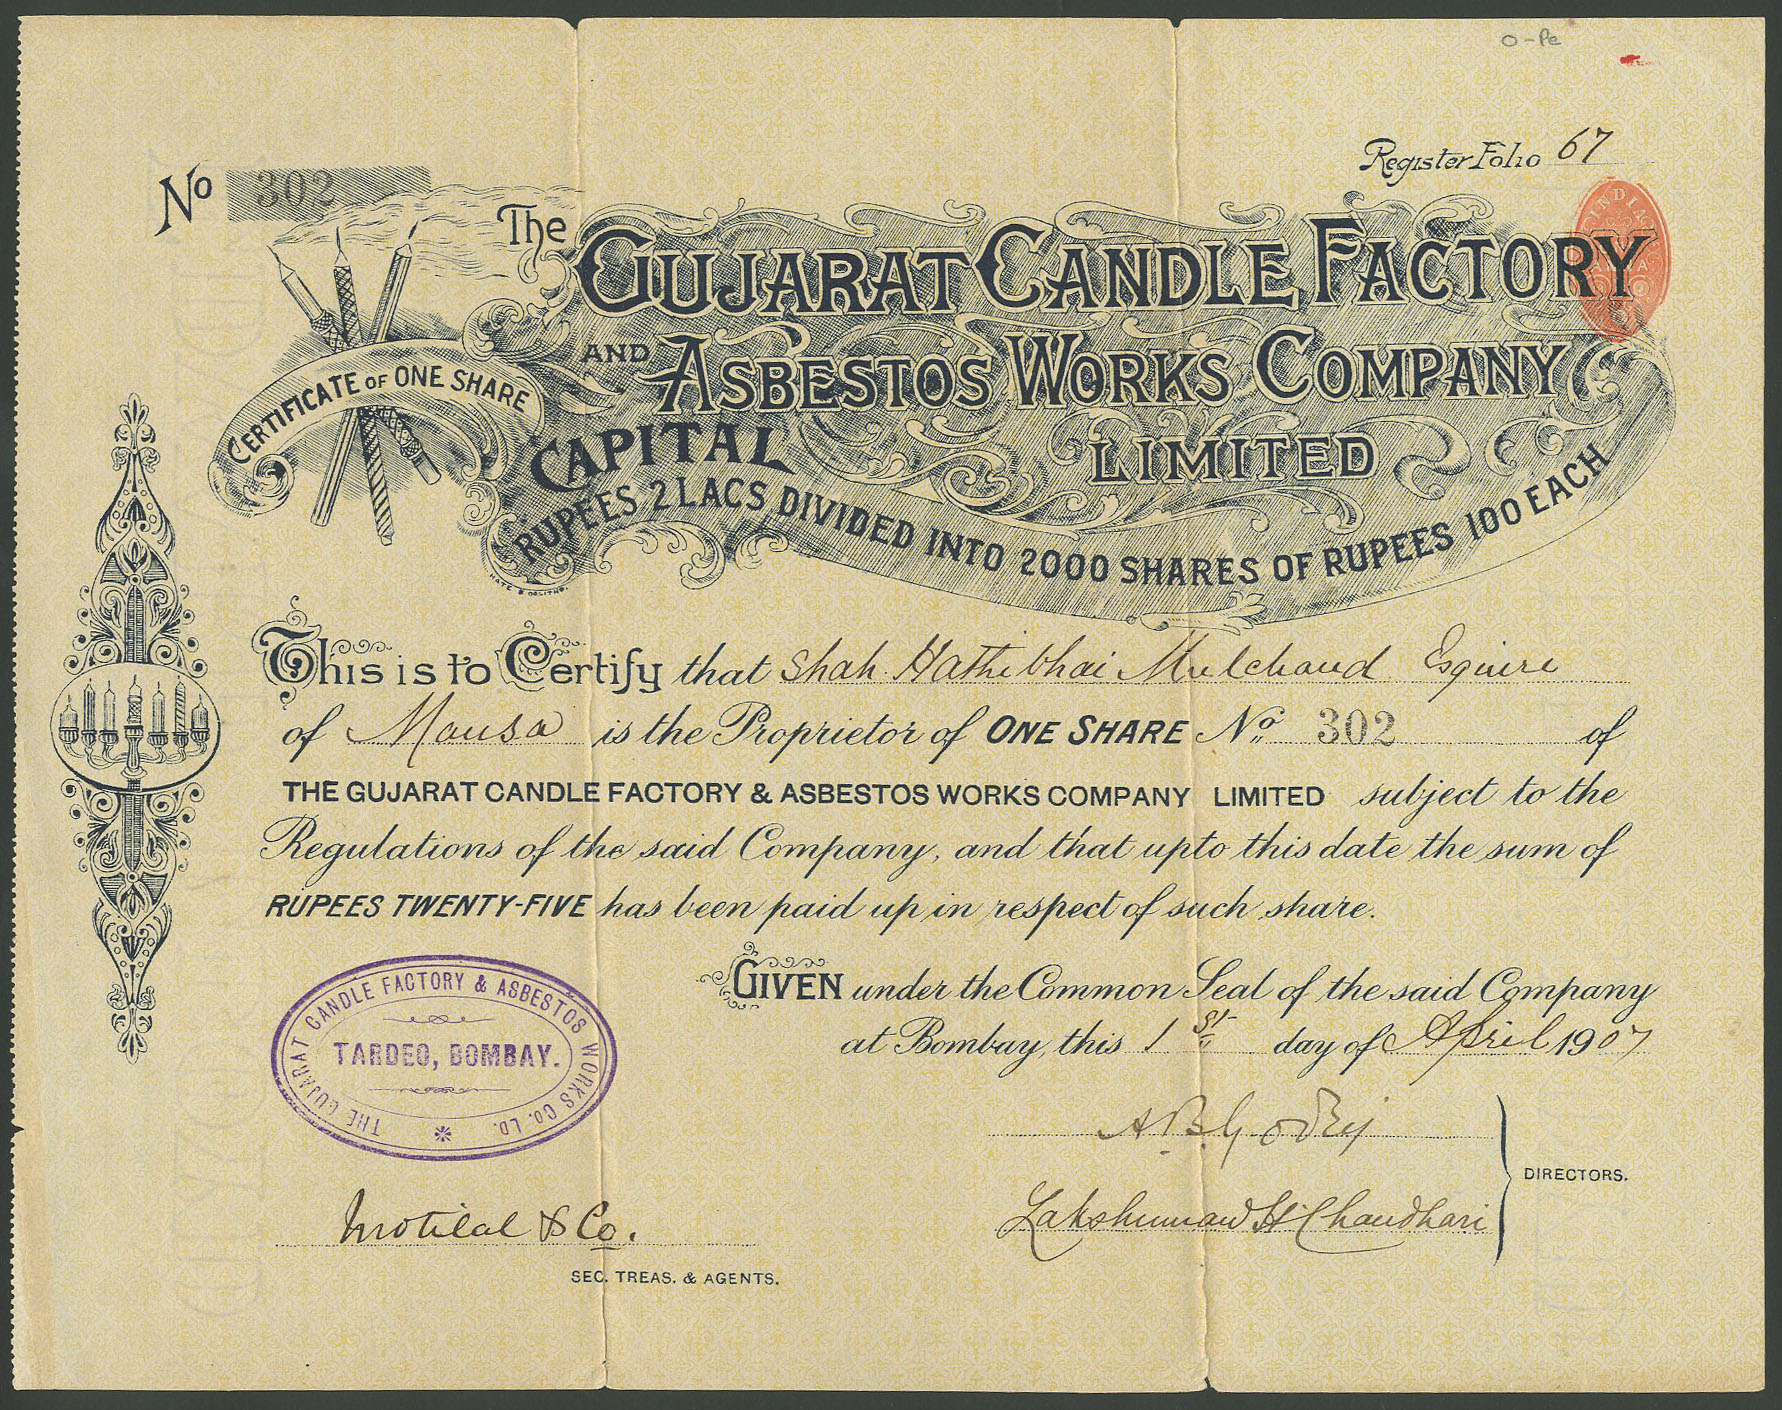 O-Pe
Register Folio 67
No 302
INDIA
The GUJARAT CANDLE FACTORY
AND ASBESTOS WORKS COMPANY
LIMITED
CERTIFICATE OF ONE SHARE
CAPITAL
RUPEES 2 LACS DIVIDED INTO 2000 SHARES OF RUPEES 100 EACH
This is to Certify that Shah Hathibhai Mulchand Esquire
of Mansa is the Proprietor of ONE SHARE No 302 of
THE GUJARAT CANDLE FACTORY & ASBESTOS WORKS COMPANY LIMITED subject to the
Regulations of the said Company, and that upto this date the sum of
RUPEES TWENTY-FIVE has been paid up in respect of such share.
GIVEN under the Common Seal of the said Company
at Bombay, this 1st day of April 1907
THE GUJARAT CANDLE FACTORY & ASBESTOS WORKS CO. LD.
TARDEO, BOMBAY.
A B Godrej
Lakshuman H Chaudhari
DIRECTORS.
Motilal & Co.
SEC. TREAS. & AGENTS.